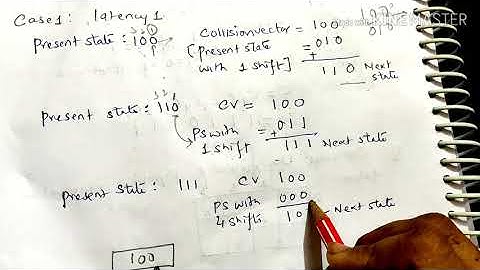 Case1: latency1
Present state: 100
3 2 1
Collision vector = 100
[Present state = 010
with 1 shift] +
110 Next state
Present state: 110
3 2 1
CV = 100
PS with = 011
1 shift +
111 Next state
Present state: 111
CV 100
PS with 000
4 shifts
10 Next state
100